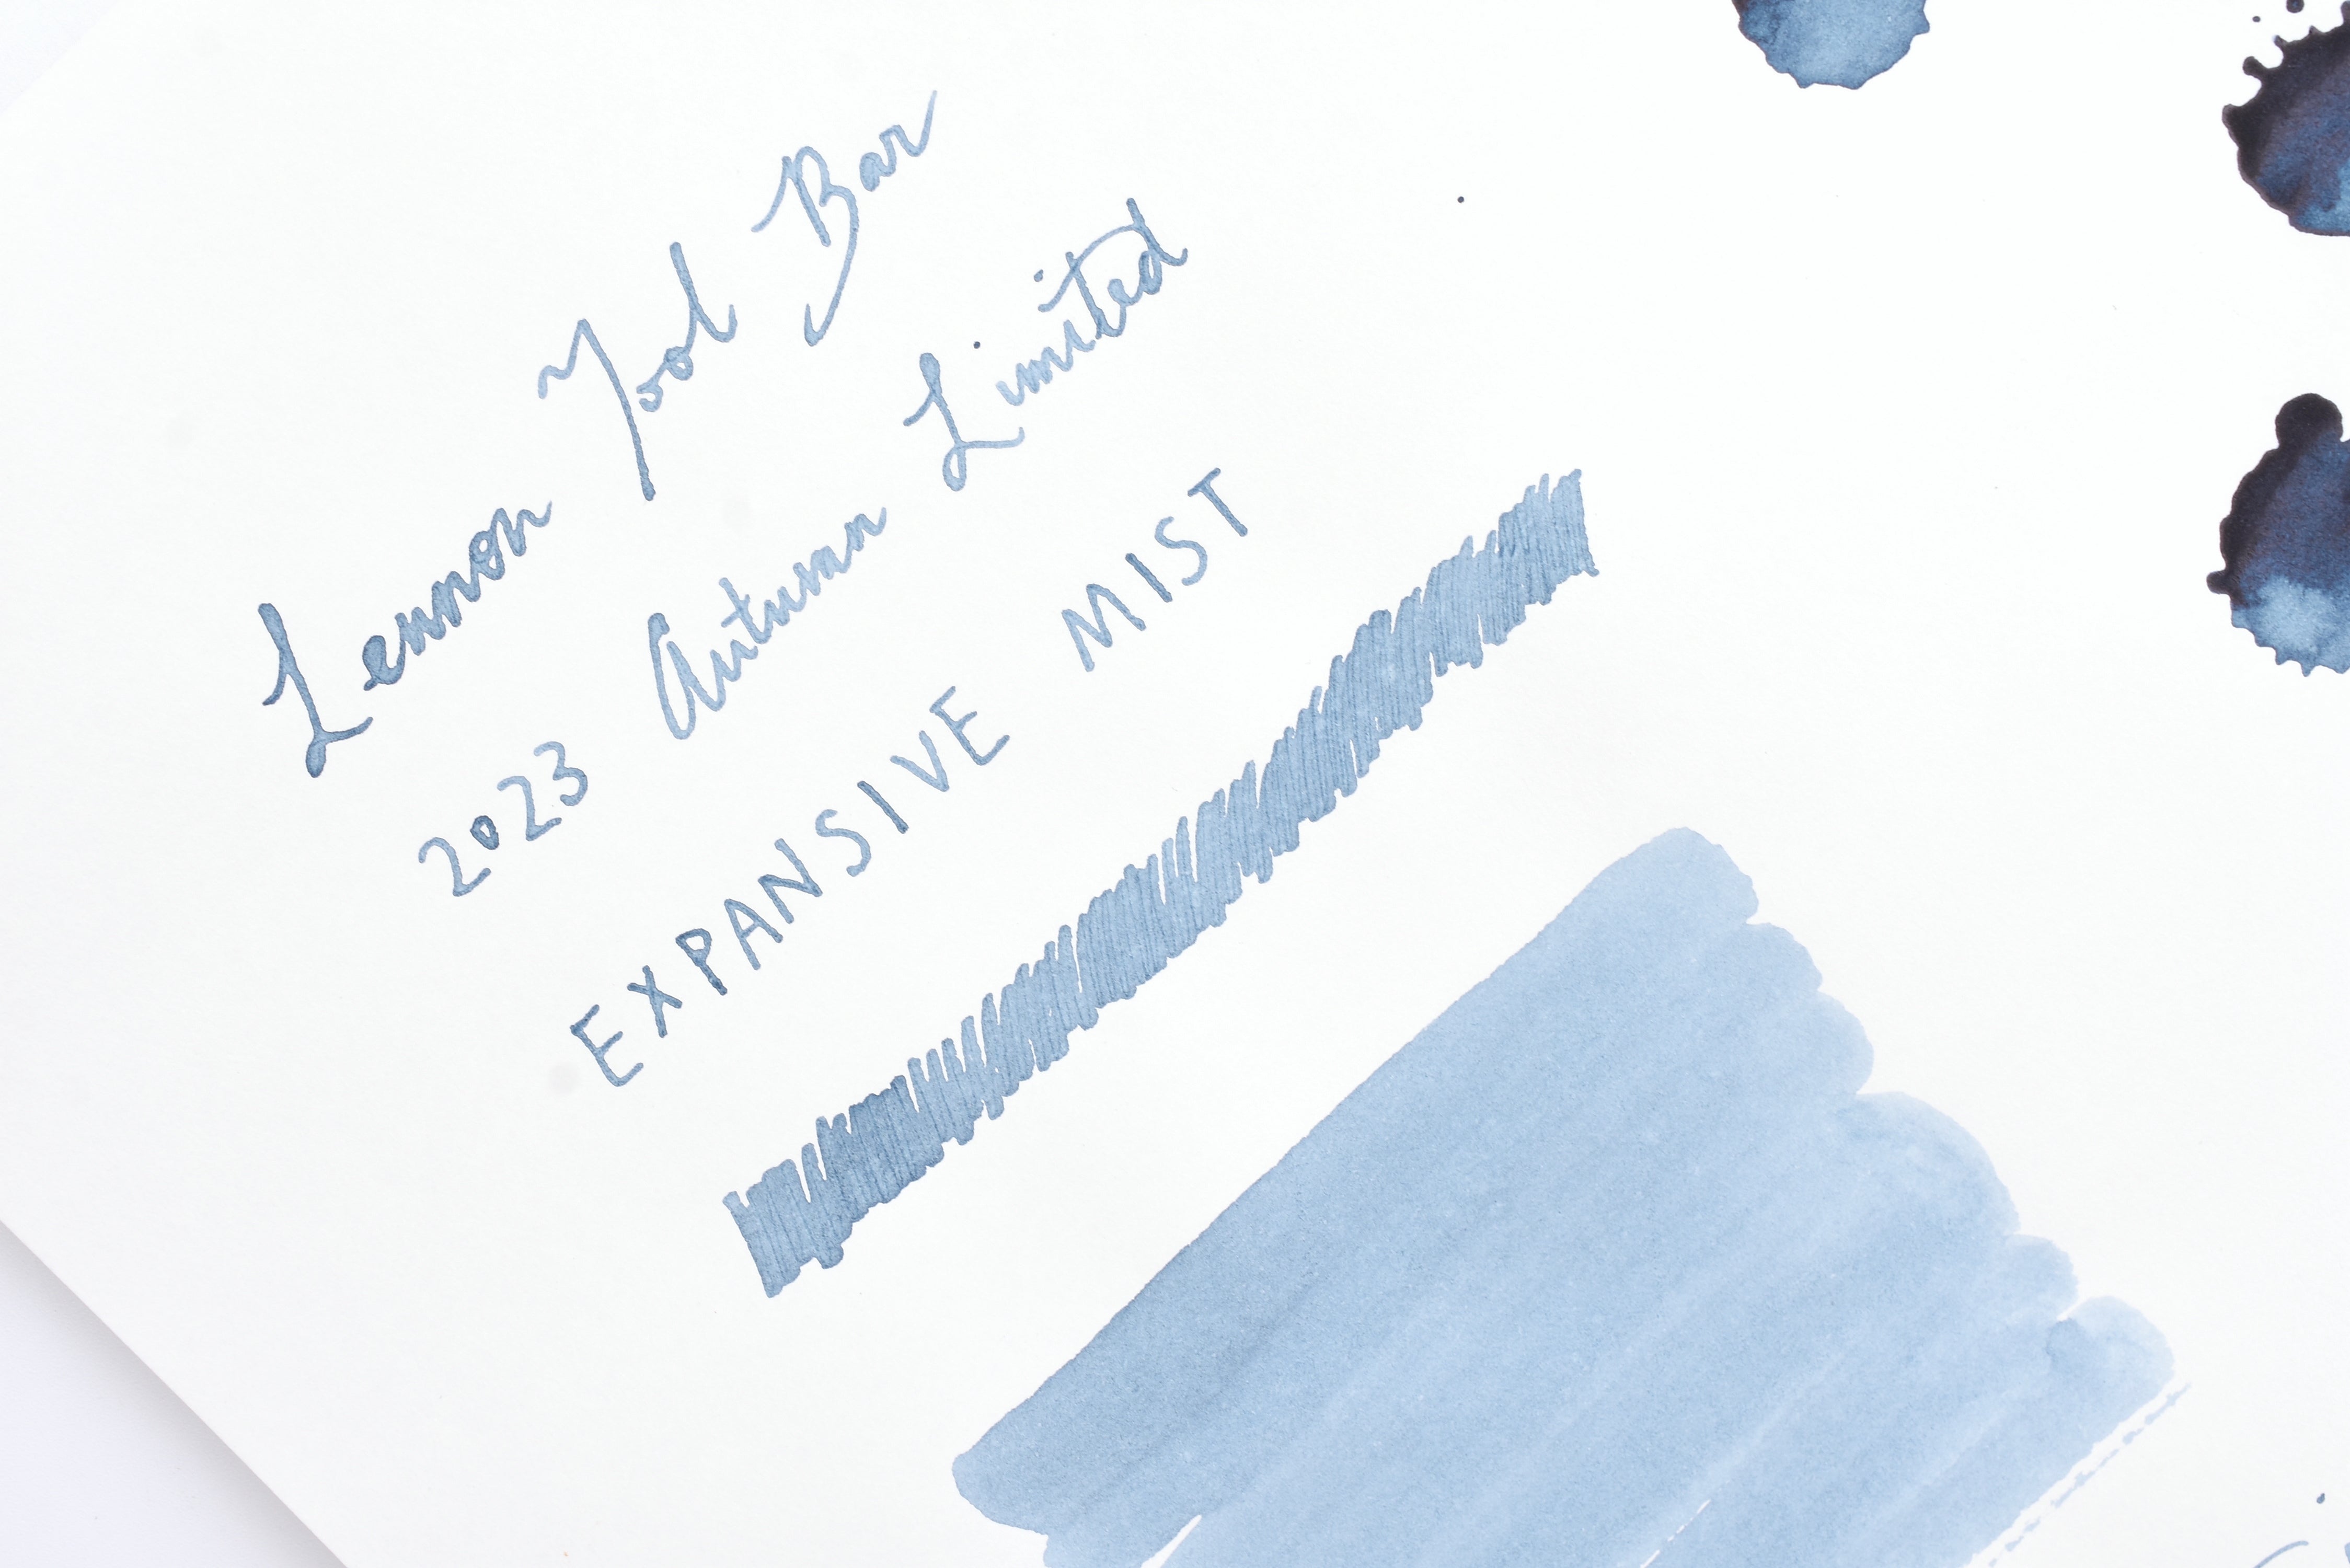 Lennon Tool Bar
2023 Autumn Limited
EXPANSIVE MIST